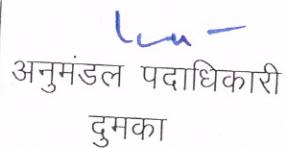 अनुमंडल पदाधिकारी
दुमका